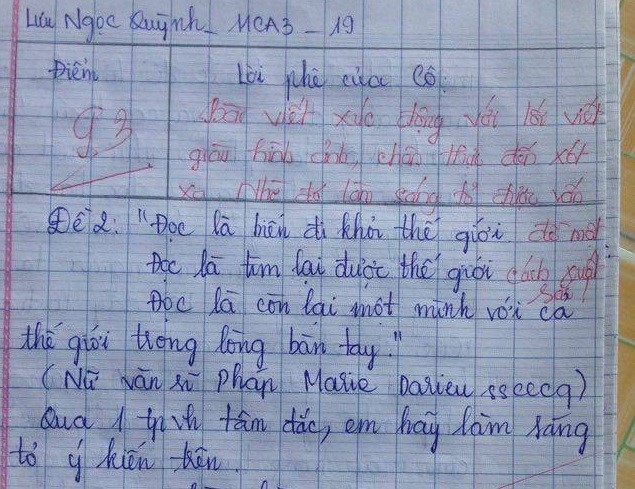 Lưu Ngọc Quỳnh_ MCA3 - 19
Điểm
Lời phê của Cô:
9,3
Bài viết xúc động với lối viết
giàu hình ảnh, chân thực đến xót
xa. Nhờ đó làm sáng tỏ được vấn
đề một
cách xuất
sắc
Đề 2: "Đọc là biến đi khỏi thế giới
Đọc là tìm lại được thế giới
Đọc là còn lại một mình với cả
thế giới trong lòng bàn tay."
(Nữ văn sĩ Pháp Marie
Qua 1 tp vh tâm đắc, em hãy làm sáng
tỏ ý kiến trên.